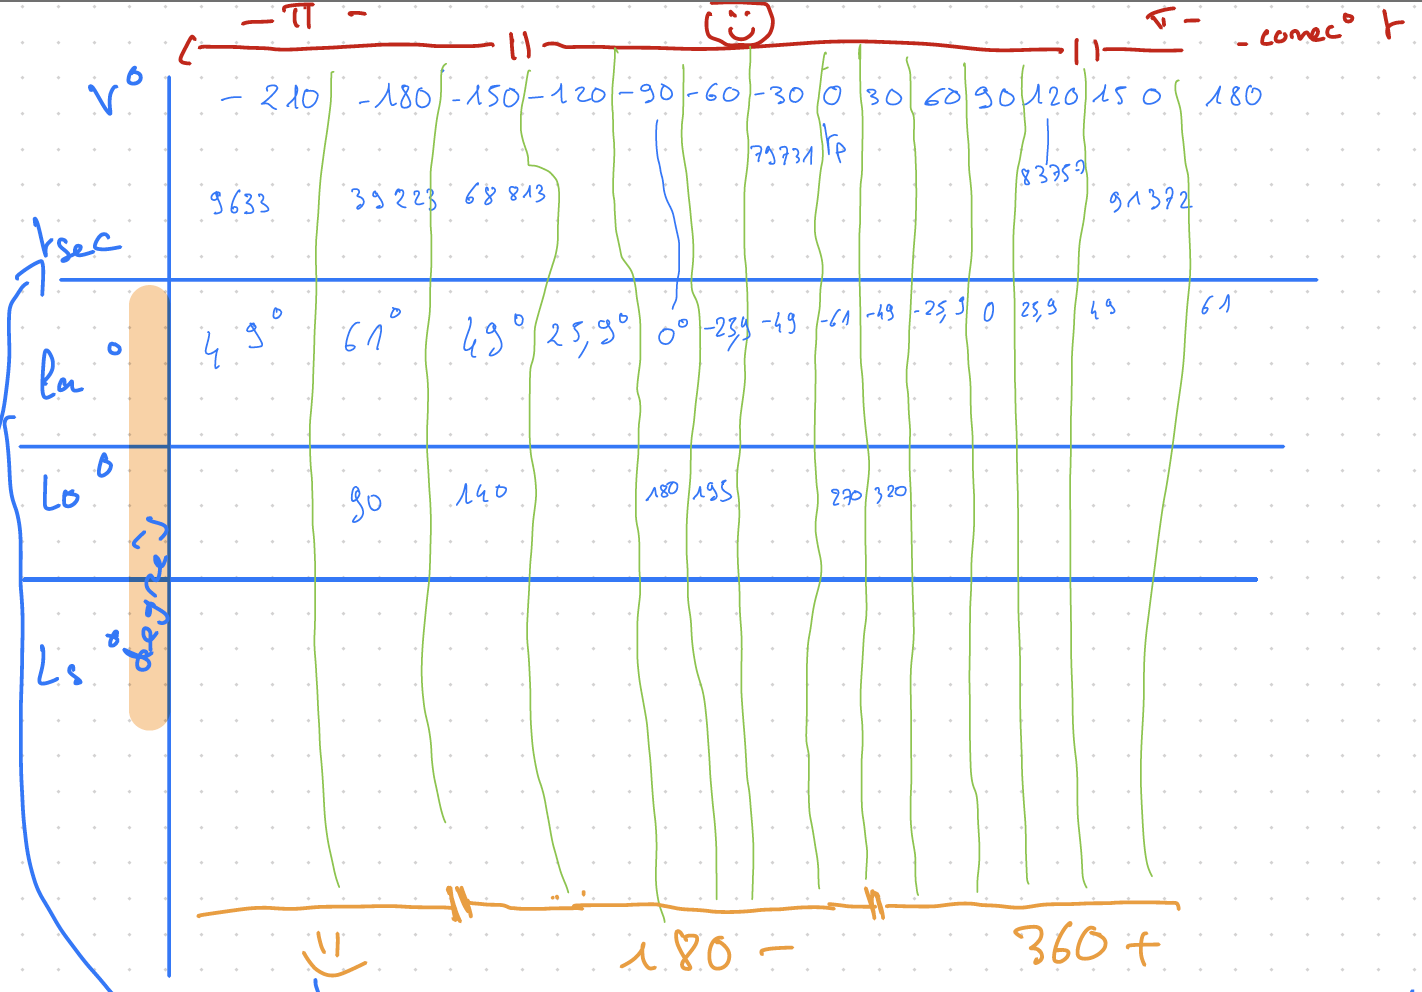 - π - π -
- correc° t
V° - 210 -180 -150 -120 -90 -60 -30 0 30 60 90 120 150 180
79731 tp 83757
tsec 9633 39223 68813 91372
la° 49° 61° 49° 25,9° 0° -23,9 -49 -61 -49 -25,9 0 25,9 49 61
Lo° 90 140 180 195 270 320
degrés
Ls°
180 - 360 +